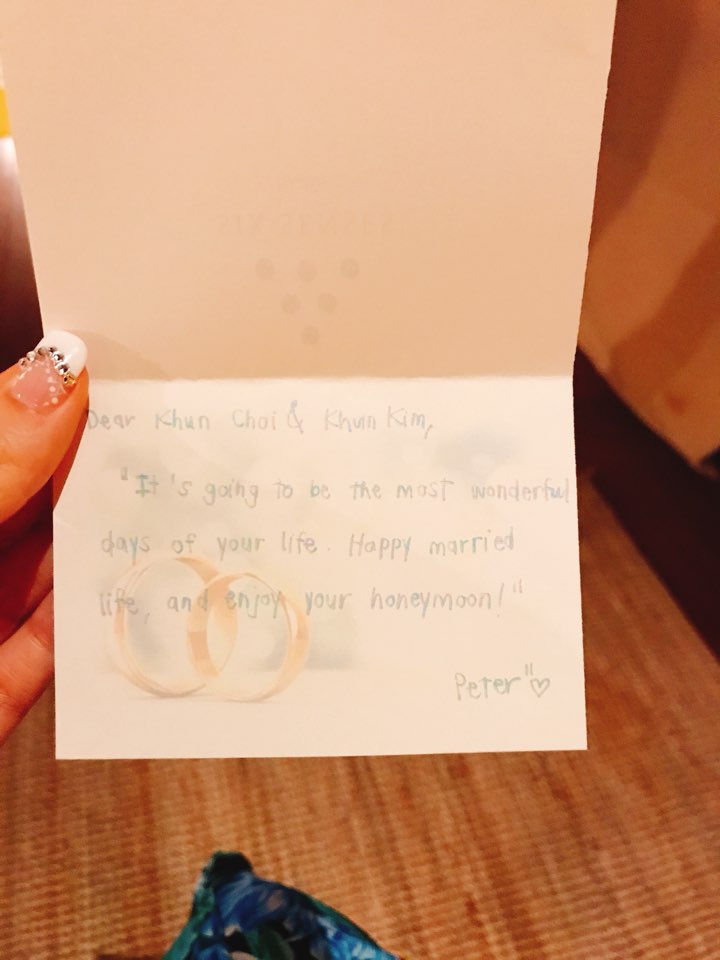 SIX SENSES
Dear Khun Choi & Khun Kim,
"It's going to be the most wonderful
days of your life. Happy married
life, and enjoy your honeymoon!"
Peter"♡